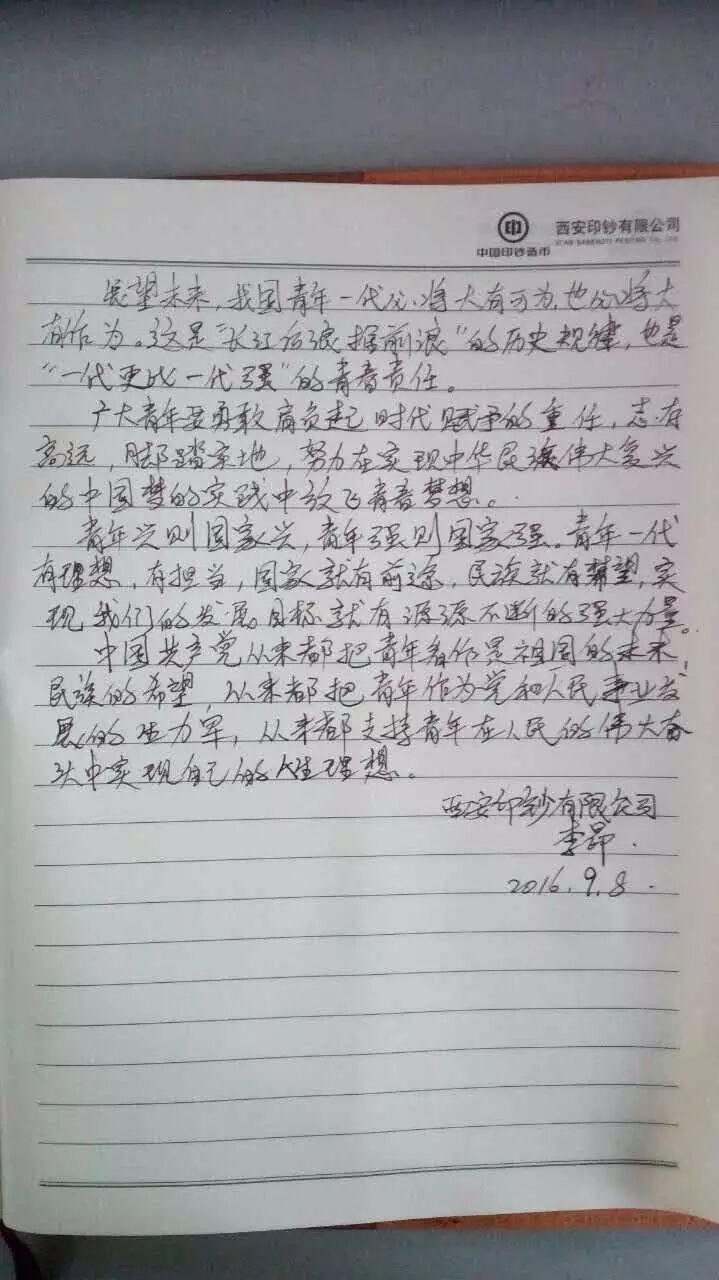 中国印钞造币
西安印钞有限公司
XI'AN BANKNOTE PRINTING CO., LTD.
展望未来，我国青年一代必将大有可为，也必将大
有作为。这是“长江后浪推前浪”的历史规律，也是
“一代更比一代强”的青春责任。
广大青年要勇敢肩负起时代赋予的重任，志存
高远，脚踏实地，努力在实现中华民族伟大复兴
的中国梦的实践中放飞青春梦想。
青年兴则国家兴，青年强则国家强。青年一代
有理想，有担当，国家就有前途，民族就有希望，实
现我们的发展目标就有源源不断的强大力量。
中国共产党从来都把青年看作是祖国的未来、
民族的希望，从来都把青年作为党和人民事业发
展的生力军，从来都支持青年在人民的伟大奋
斗中实现自己的人生理想。
西安印钞有限公司
李昂
2016.9.8.